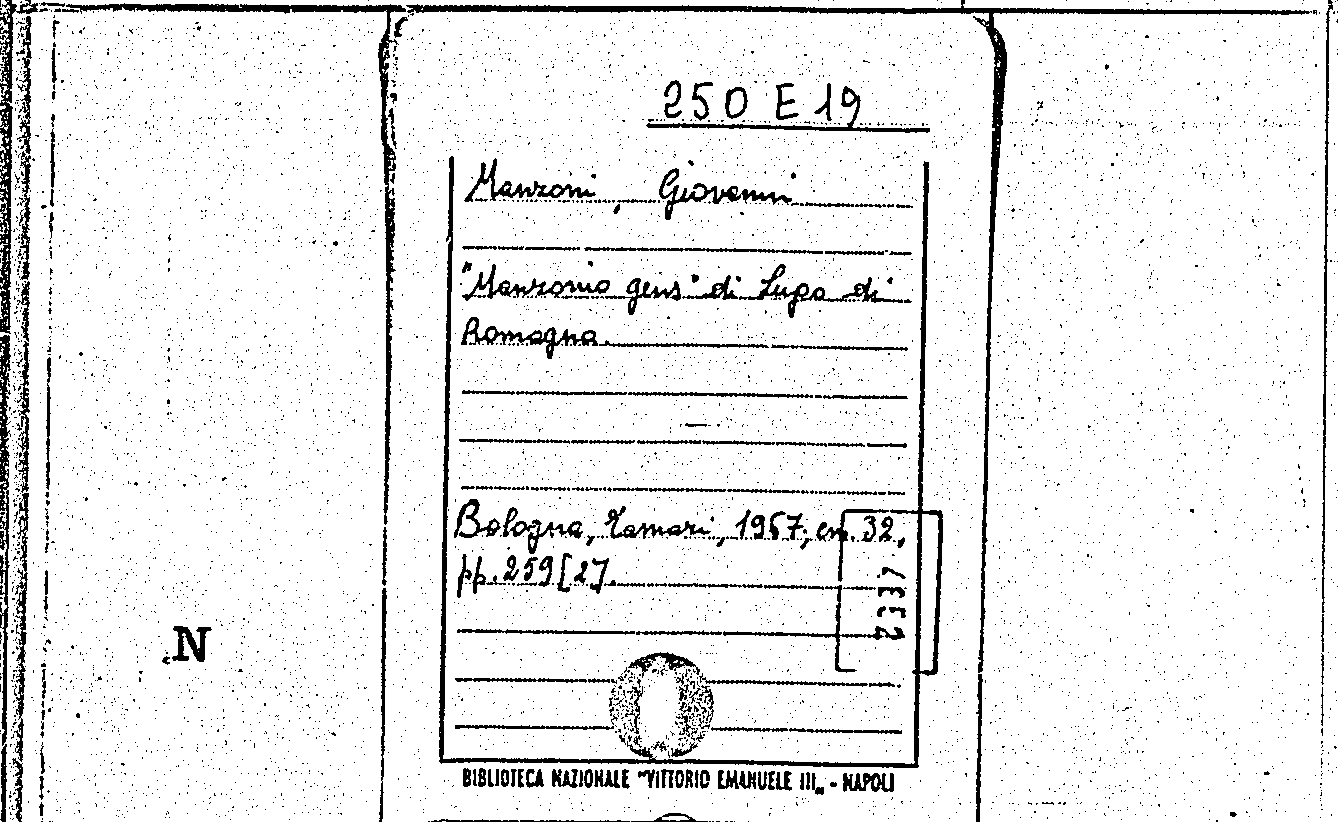 250 E 19
Manzoni, Giovanni
"Manzonia gens" di Lugo di
Romagna.
Bologna, Tamari, 1967, cm. 32,
pp. 259 [2].
N
BIBLIOTECA NAZIONALE "VITTORIO EMANUELE III„ - NAPOLI